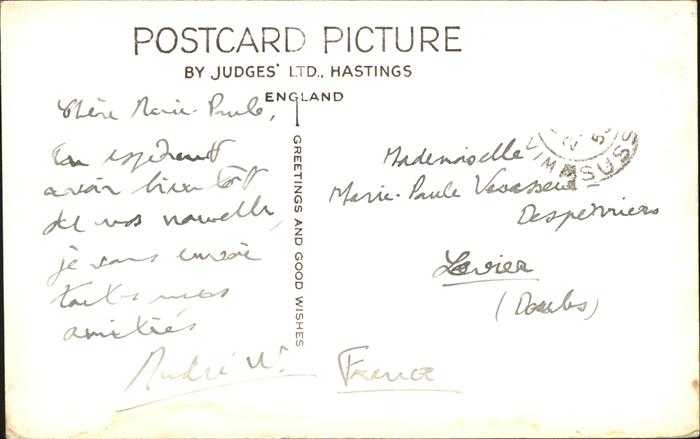 POSTCARD PICTURE
BY JUDGES' LTD., HASTINGS
ENGLAND
GREETINGS AND GOOD WISHES
Chère Marie-Paule,
En espérant
avoir bientôt
de vos nouvelles,
je vous envoie
toutes mes
amitiés
André W.
Mademoiselle
Marie-Paule Vasseur
Desperriers
Levier
(Doubs)
France
SUSS